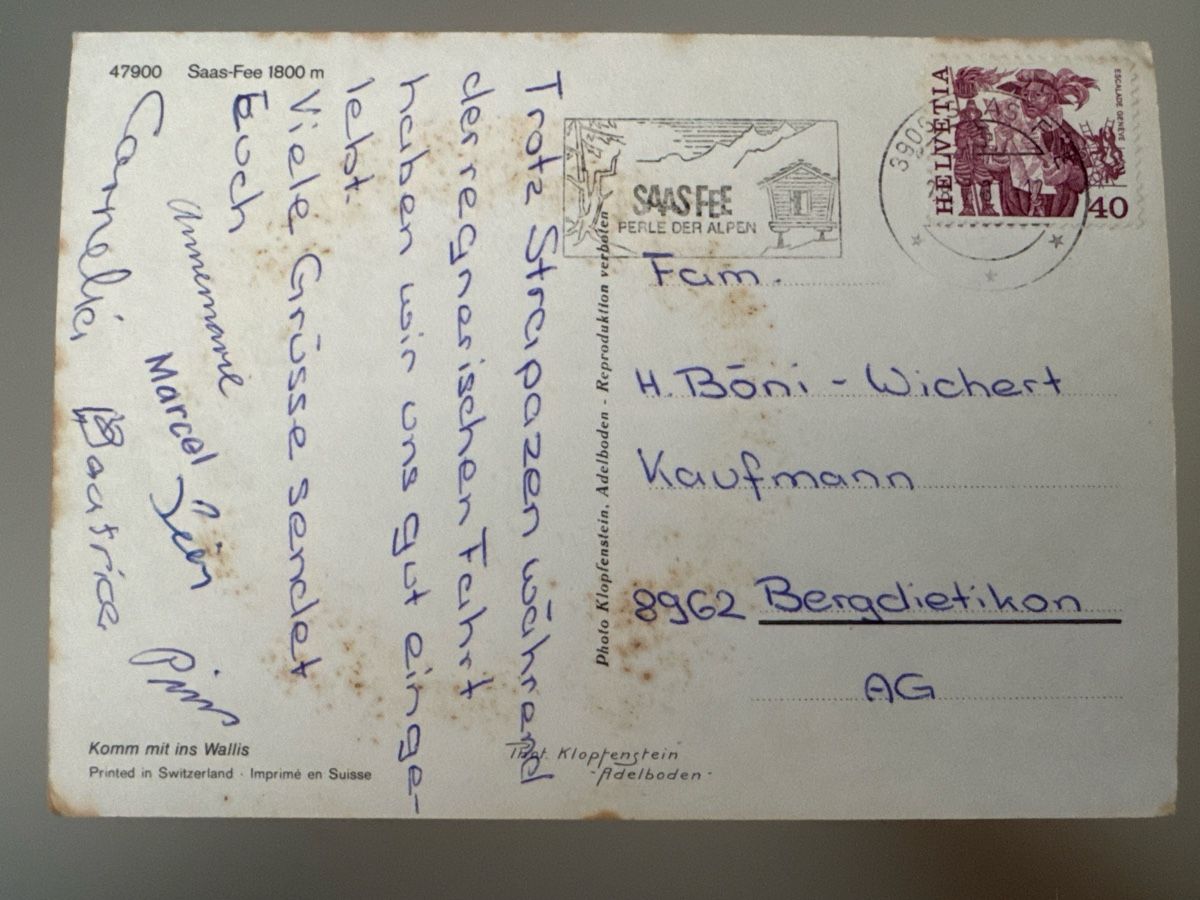 47900 Saas-Fee 1800 m
Trotz Strapazen während
der regnerischen Fahrt
haben wir uns gut einge-
lebt.
Viele Grüsse sendet
Euch
Annemarie
Marcel
Cornelia Beatrice
Komm mit ins Wallis
Printed in Switzerland · Imprimé en Suisse
Photo Klopfenstein, Adelboden - Reproduktion verboten
Phot. Klopfenstein
-Adelboden-
SAAS FEE
PERLE DER ALPEN
HELVETIA
ESCALADE GENÈVE
40
Fam.
H. Böni - Wichert
Kaufmann
8962 Bergdietikon
AG